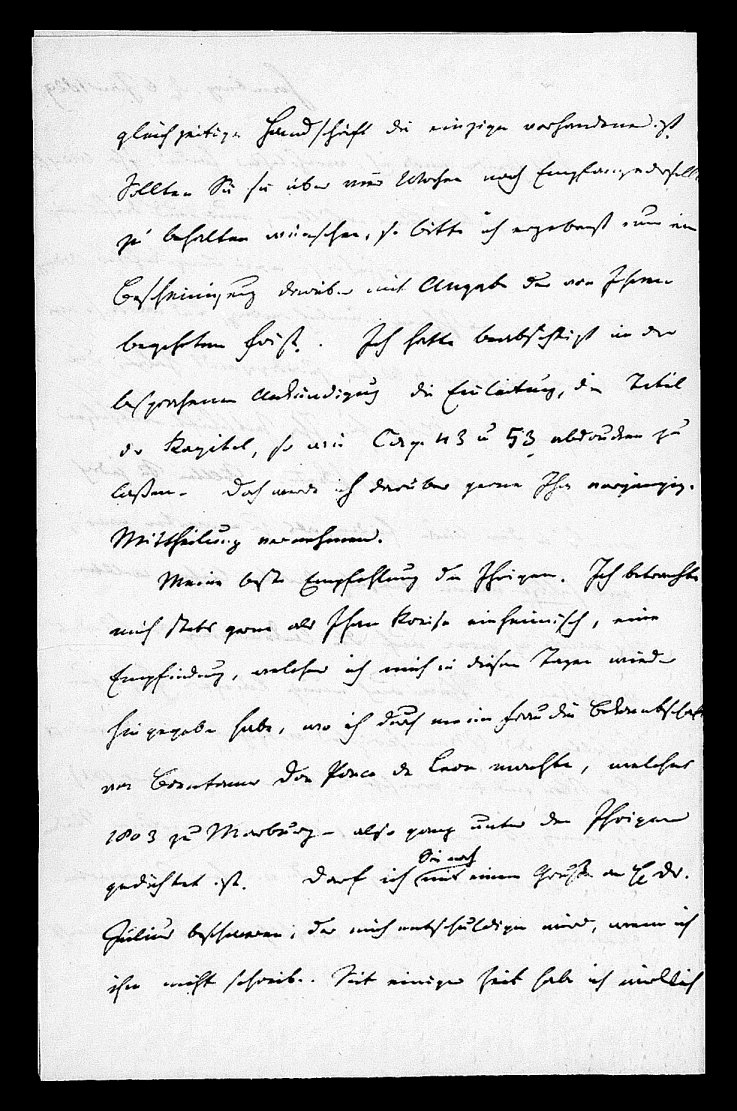 gleichzeitige Handschrift die einzige vorhandene ist.
Sollten Sie sie über vier Wochen nach Empfang derselben
zu behalten wünschen, so bitte ich ergebenst um eine
Bescheinigung darüber mit Angabe der von Ihnen
begehrten Frist. Ich hatte beabsichtigt in der
besprochenen Ankündigung die Einleitung, die Titel
der Kapitel, so wie Cap. 43 u 53 abdrucken zu
laßen. Doch werde ich darüber gerne Ihre vorgängige
Mittheilung vernehmen.
Meine beste Empfehlung den Ihrigen. Ich betrachte
mich stets gerne als Ihrem Kreise einheimisch, eine
Empfindung, welcher ich mich in diesen Tagen wieder
hingegeben habe, wo ich durch meine Frau die Bekanntschaft
von Brentanos Don Ponce de Leon machte, welcher
1803 zu Marburg – also ganz unter den Ihrigen
gedichtet ist. Darf ich Sie noch mit einem Gruße an H. Dr.
Julius beschweren, der mich entschuldigen wird, wenn ich
ihm nicht schreibe. Seit einiger Zeit habe ich wirklich